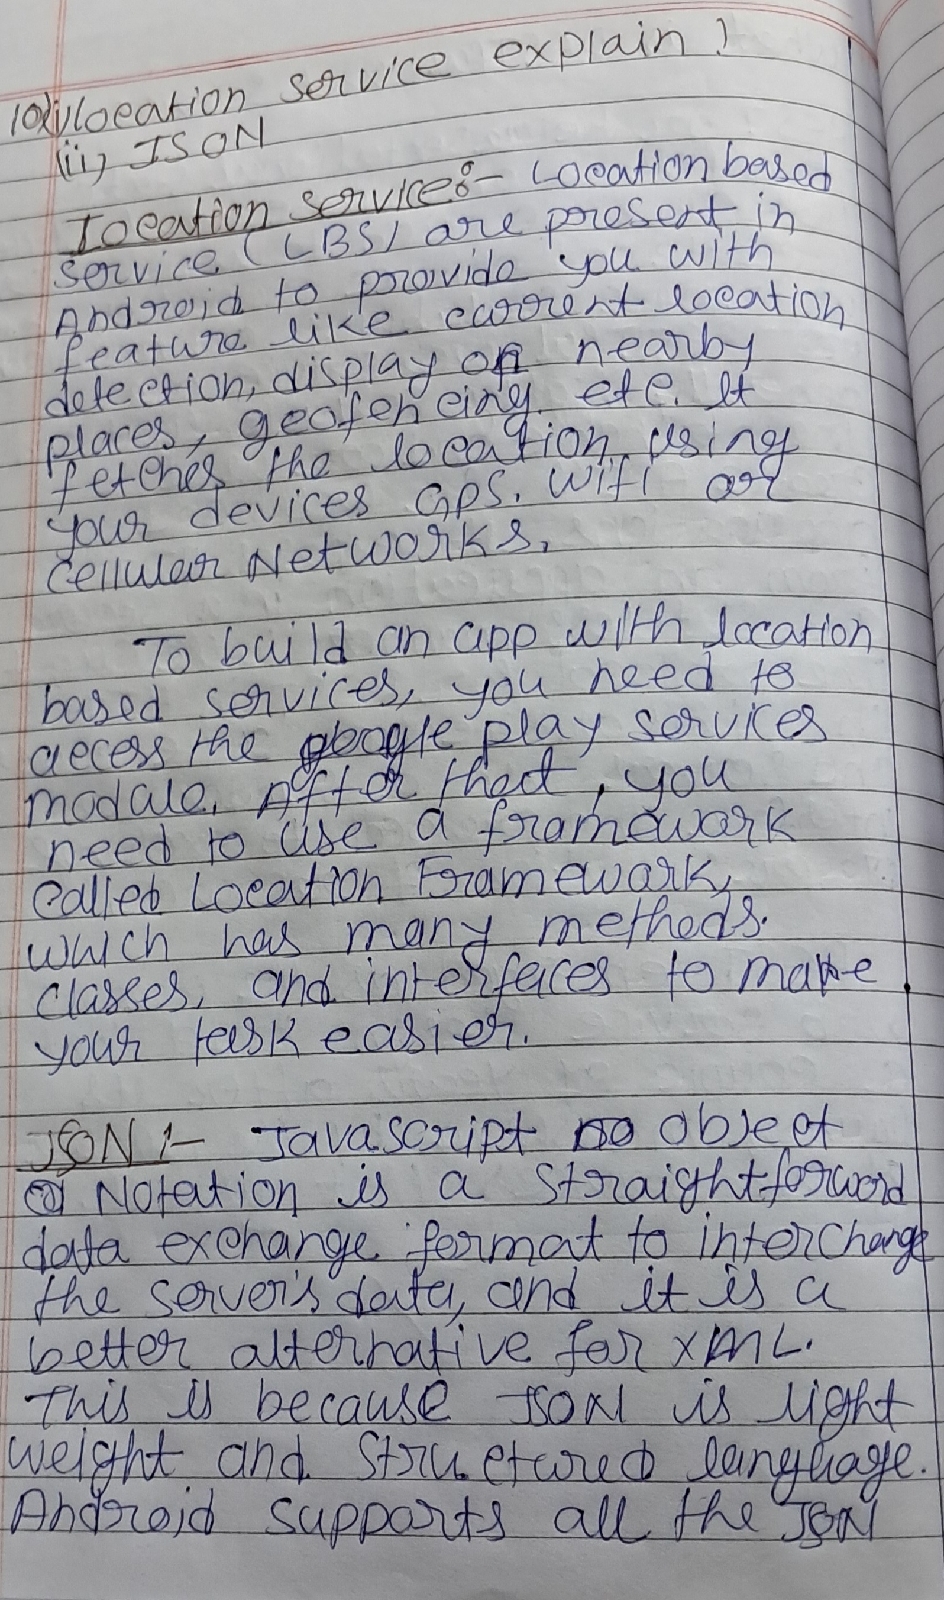 10) i) location service explain ?
(ii) JSON
Location service:- Location based
service (LBS) are present in
Android to provide you with
feature like current location
detection, display of nearby
places, geofencing. etc. It
fetches the location using
your devices GPS, Wifi or
cellular Networks.
To build an app with location
based services, you need to
access the google play services
module. After that, you
need to use a framework
called Location Framework,
which has many methods.
classes, and interfaces to make
your task easier.
JSON :- Javascript object
Notation is a straightforward
data exchange format to interchange
the server's data, and it is a
better alternative for XML.
This is because JSON is light
weight and structured language.
Android supports all the JSON